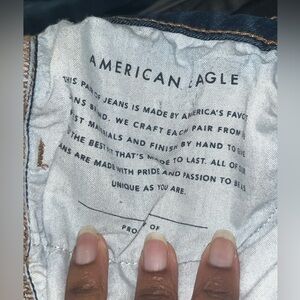 AMERICAN EAGLE
THIS PAIR OF JEANS IS MADE BY AMERICA'S FAVOR
JEANS BRAND. WE CRAFT EACH PAIR FROM
MATERIALS AND FINISH BY HAND TO
THE BEST FIT THAT'S MADE TO LAST. ALL OF OUR
JEANS ARE MADE WITH PRIDE AND PASSION TO BE AS
UNIQUE AS YOU ARE.
OF